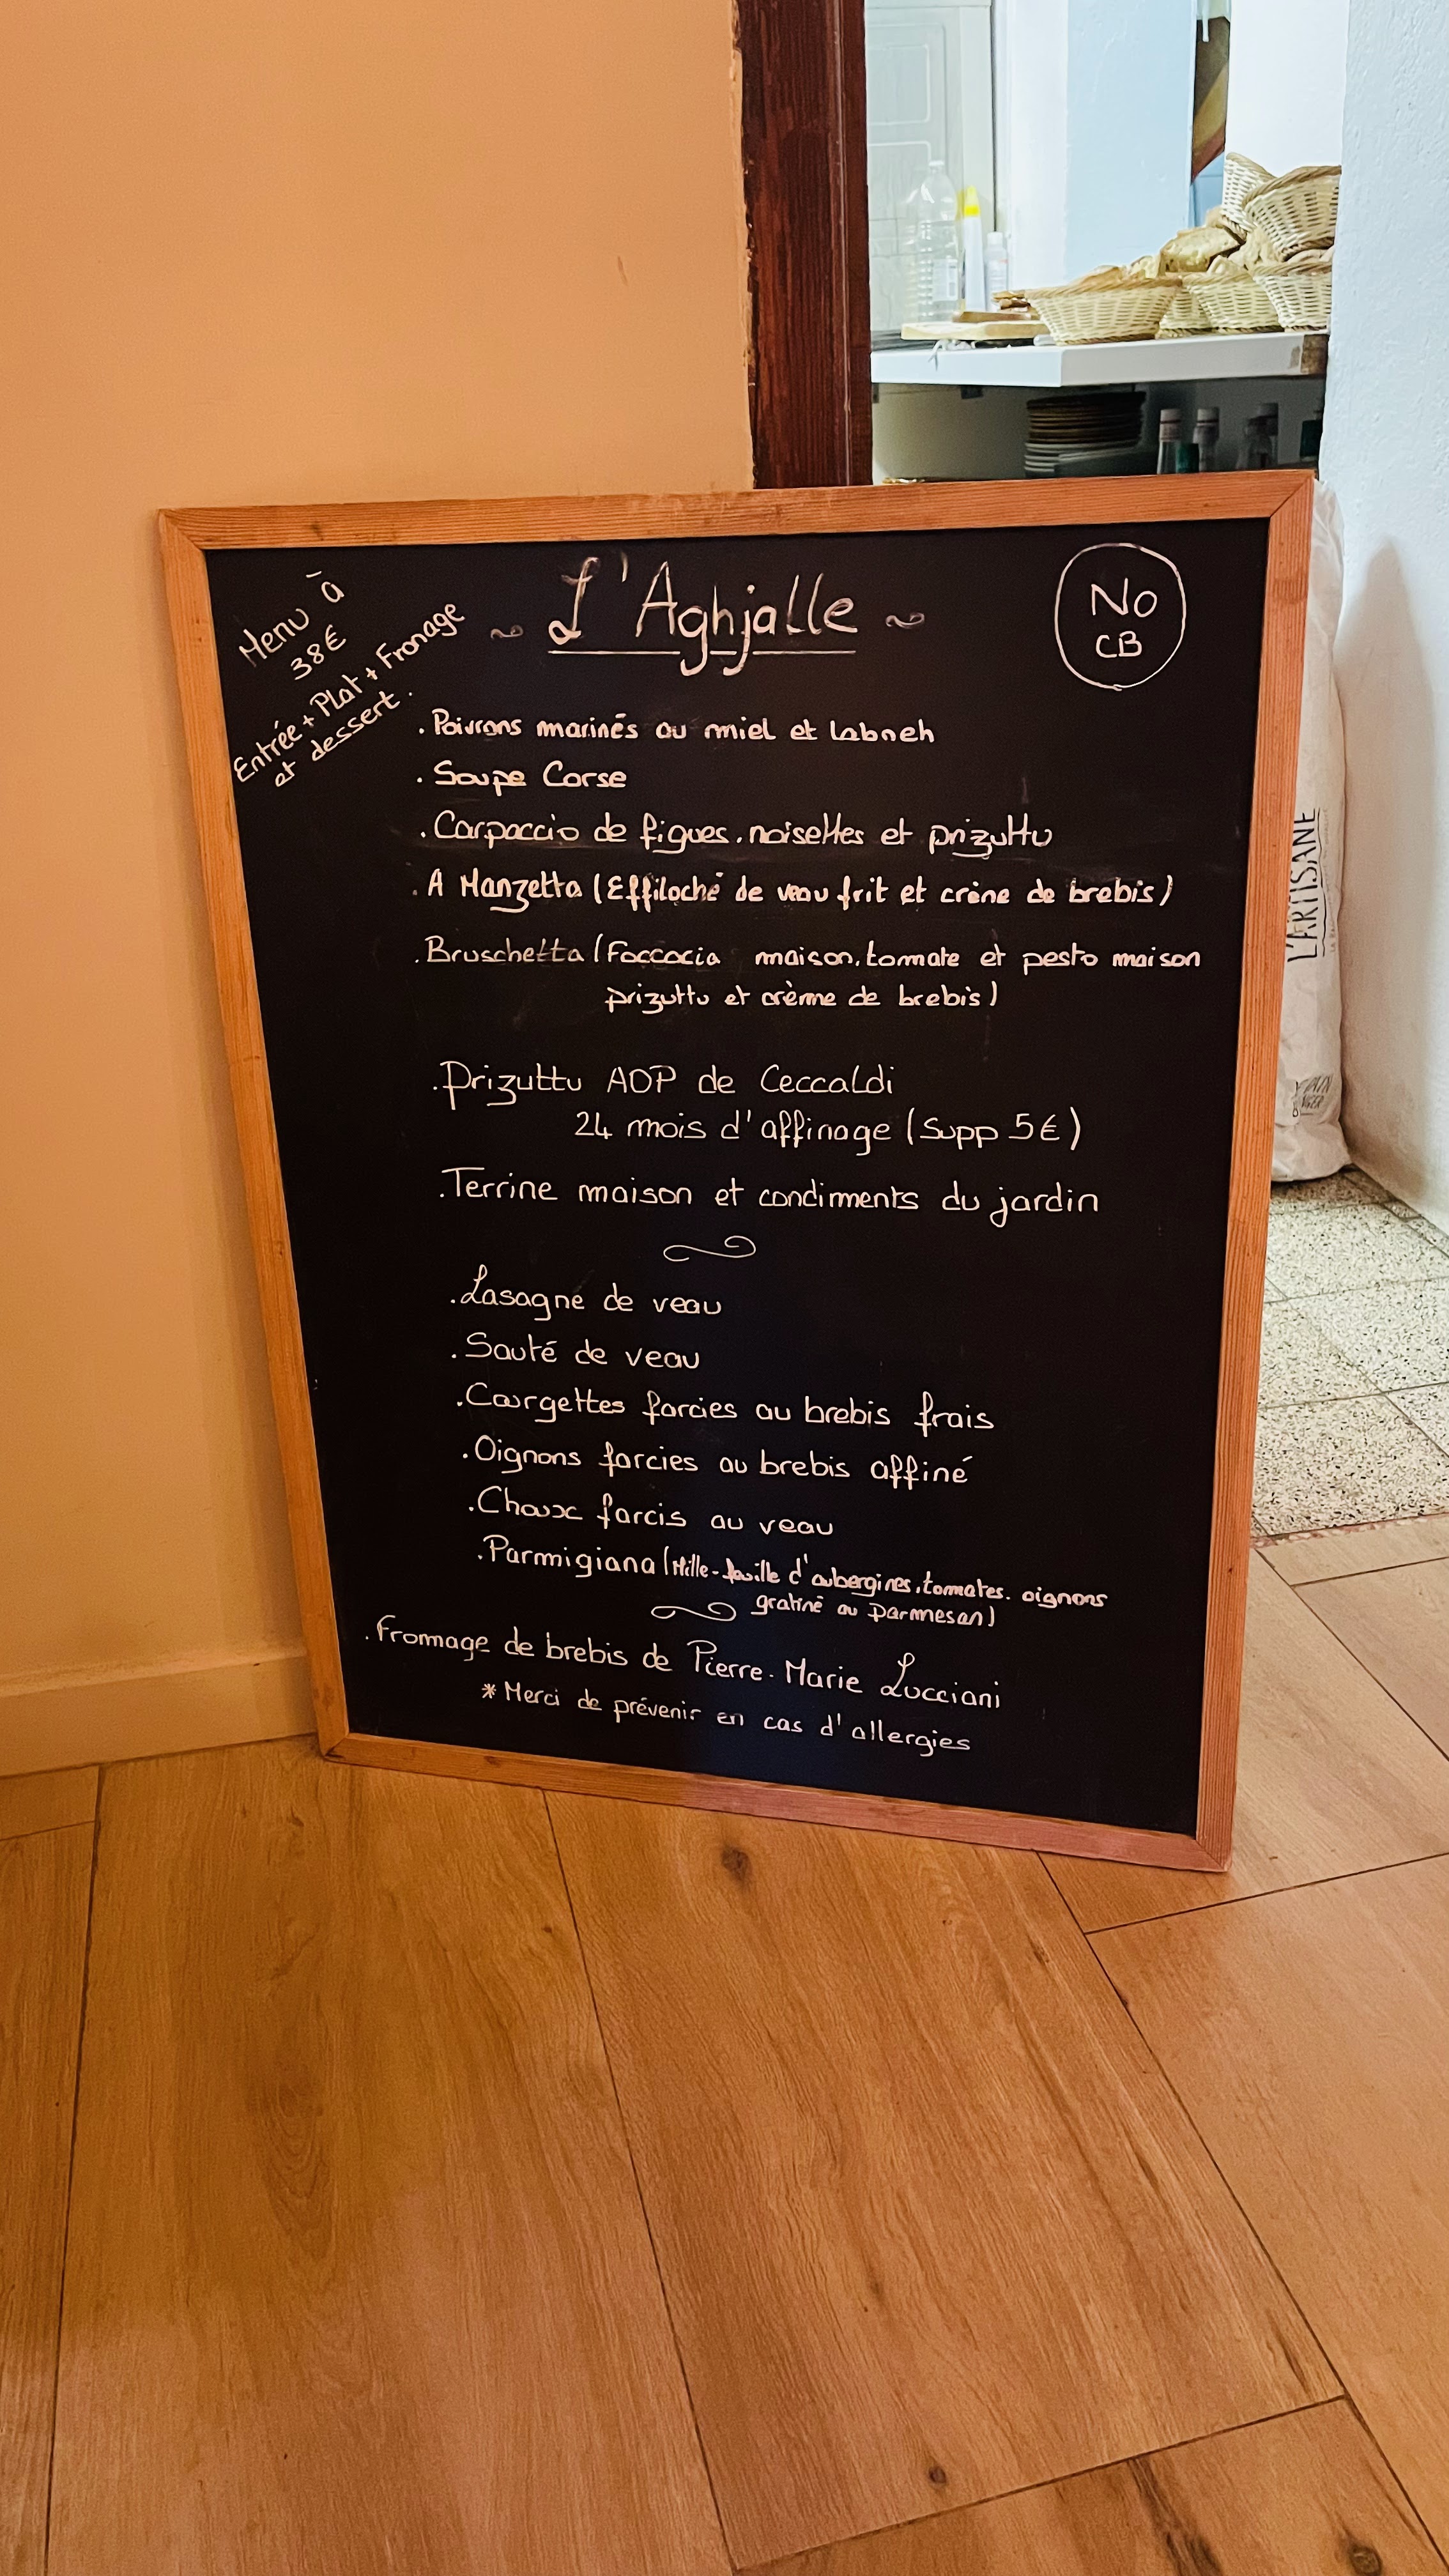 Menu à
38€
Entrée + Plat + Fromage
et dessert.
~ L'Aghjalle ~
NO
CB
. Poivrons marinés au miel et labneh
. Soupe Corse
. Carpaccio de figues, noisettes et prizuttu
. A Manzetta (Effiloché de veau frit et crème de brebis)
. Bruschetta (Foccacia maison, tomate et pesto maison
prizuttu et crème de brebis)
. Prizuttu AOP de Ceccaldi
24 mois d'affinage (Supp 5€)
. Terrine maison et condiments du jardin
. Lasagne de veau
. Sauté de veau
. Courgettes farcies au brebis frais
. Oignons farcies au brebis affiné
. Choux farcis au veau
. Parmigiana (Mille-feuille d'aubergines, tomates, oignons
gratiné au parmesan)
. Fromage de brebis de Pierre-Marie Lucciani
* Merci de prévenir en cas d'allergies
L'ARTISANE